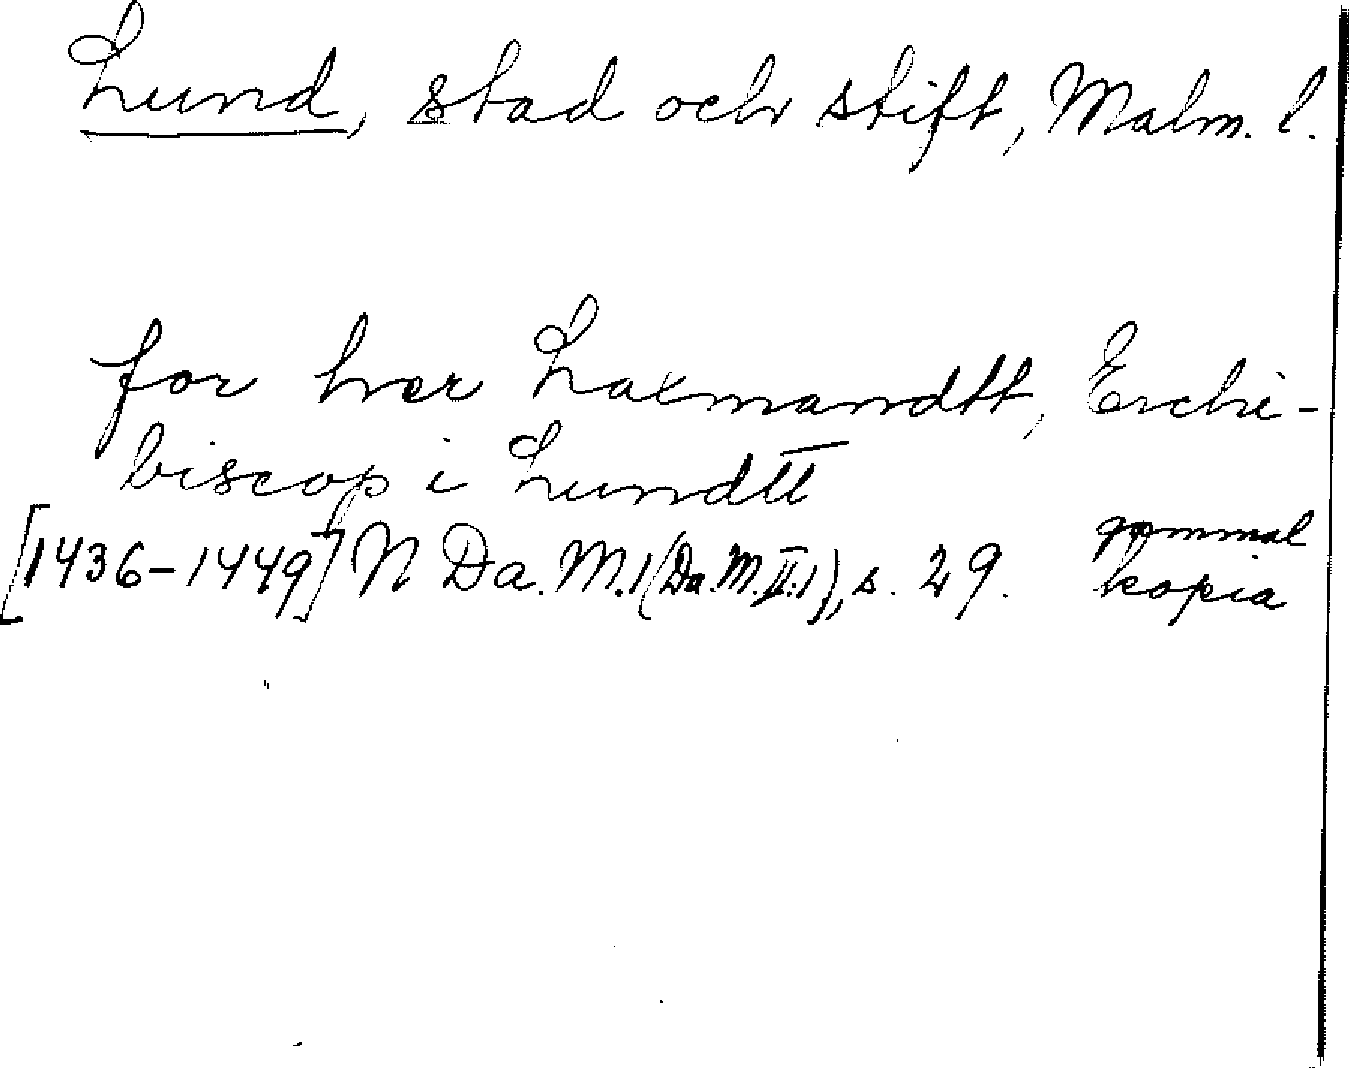 Lund, stad och stift, Malm. l.
for her Laxmandtt, Erchi-
biscop i Lundtt
[1436-1449] N Da. M. 1 (Da. M. II:1), s. 29. gammal kopia